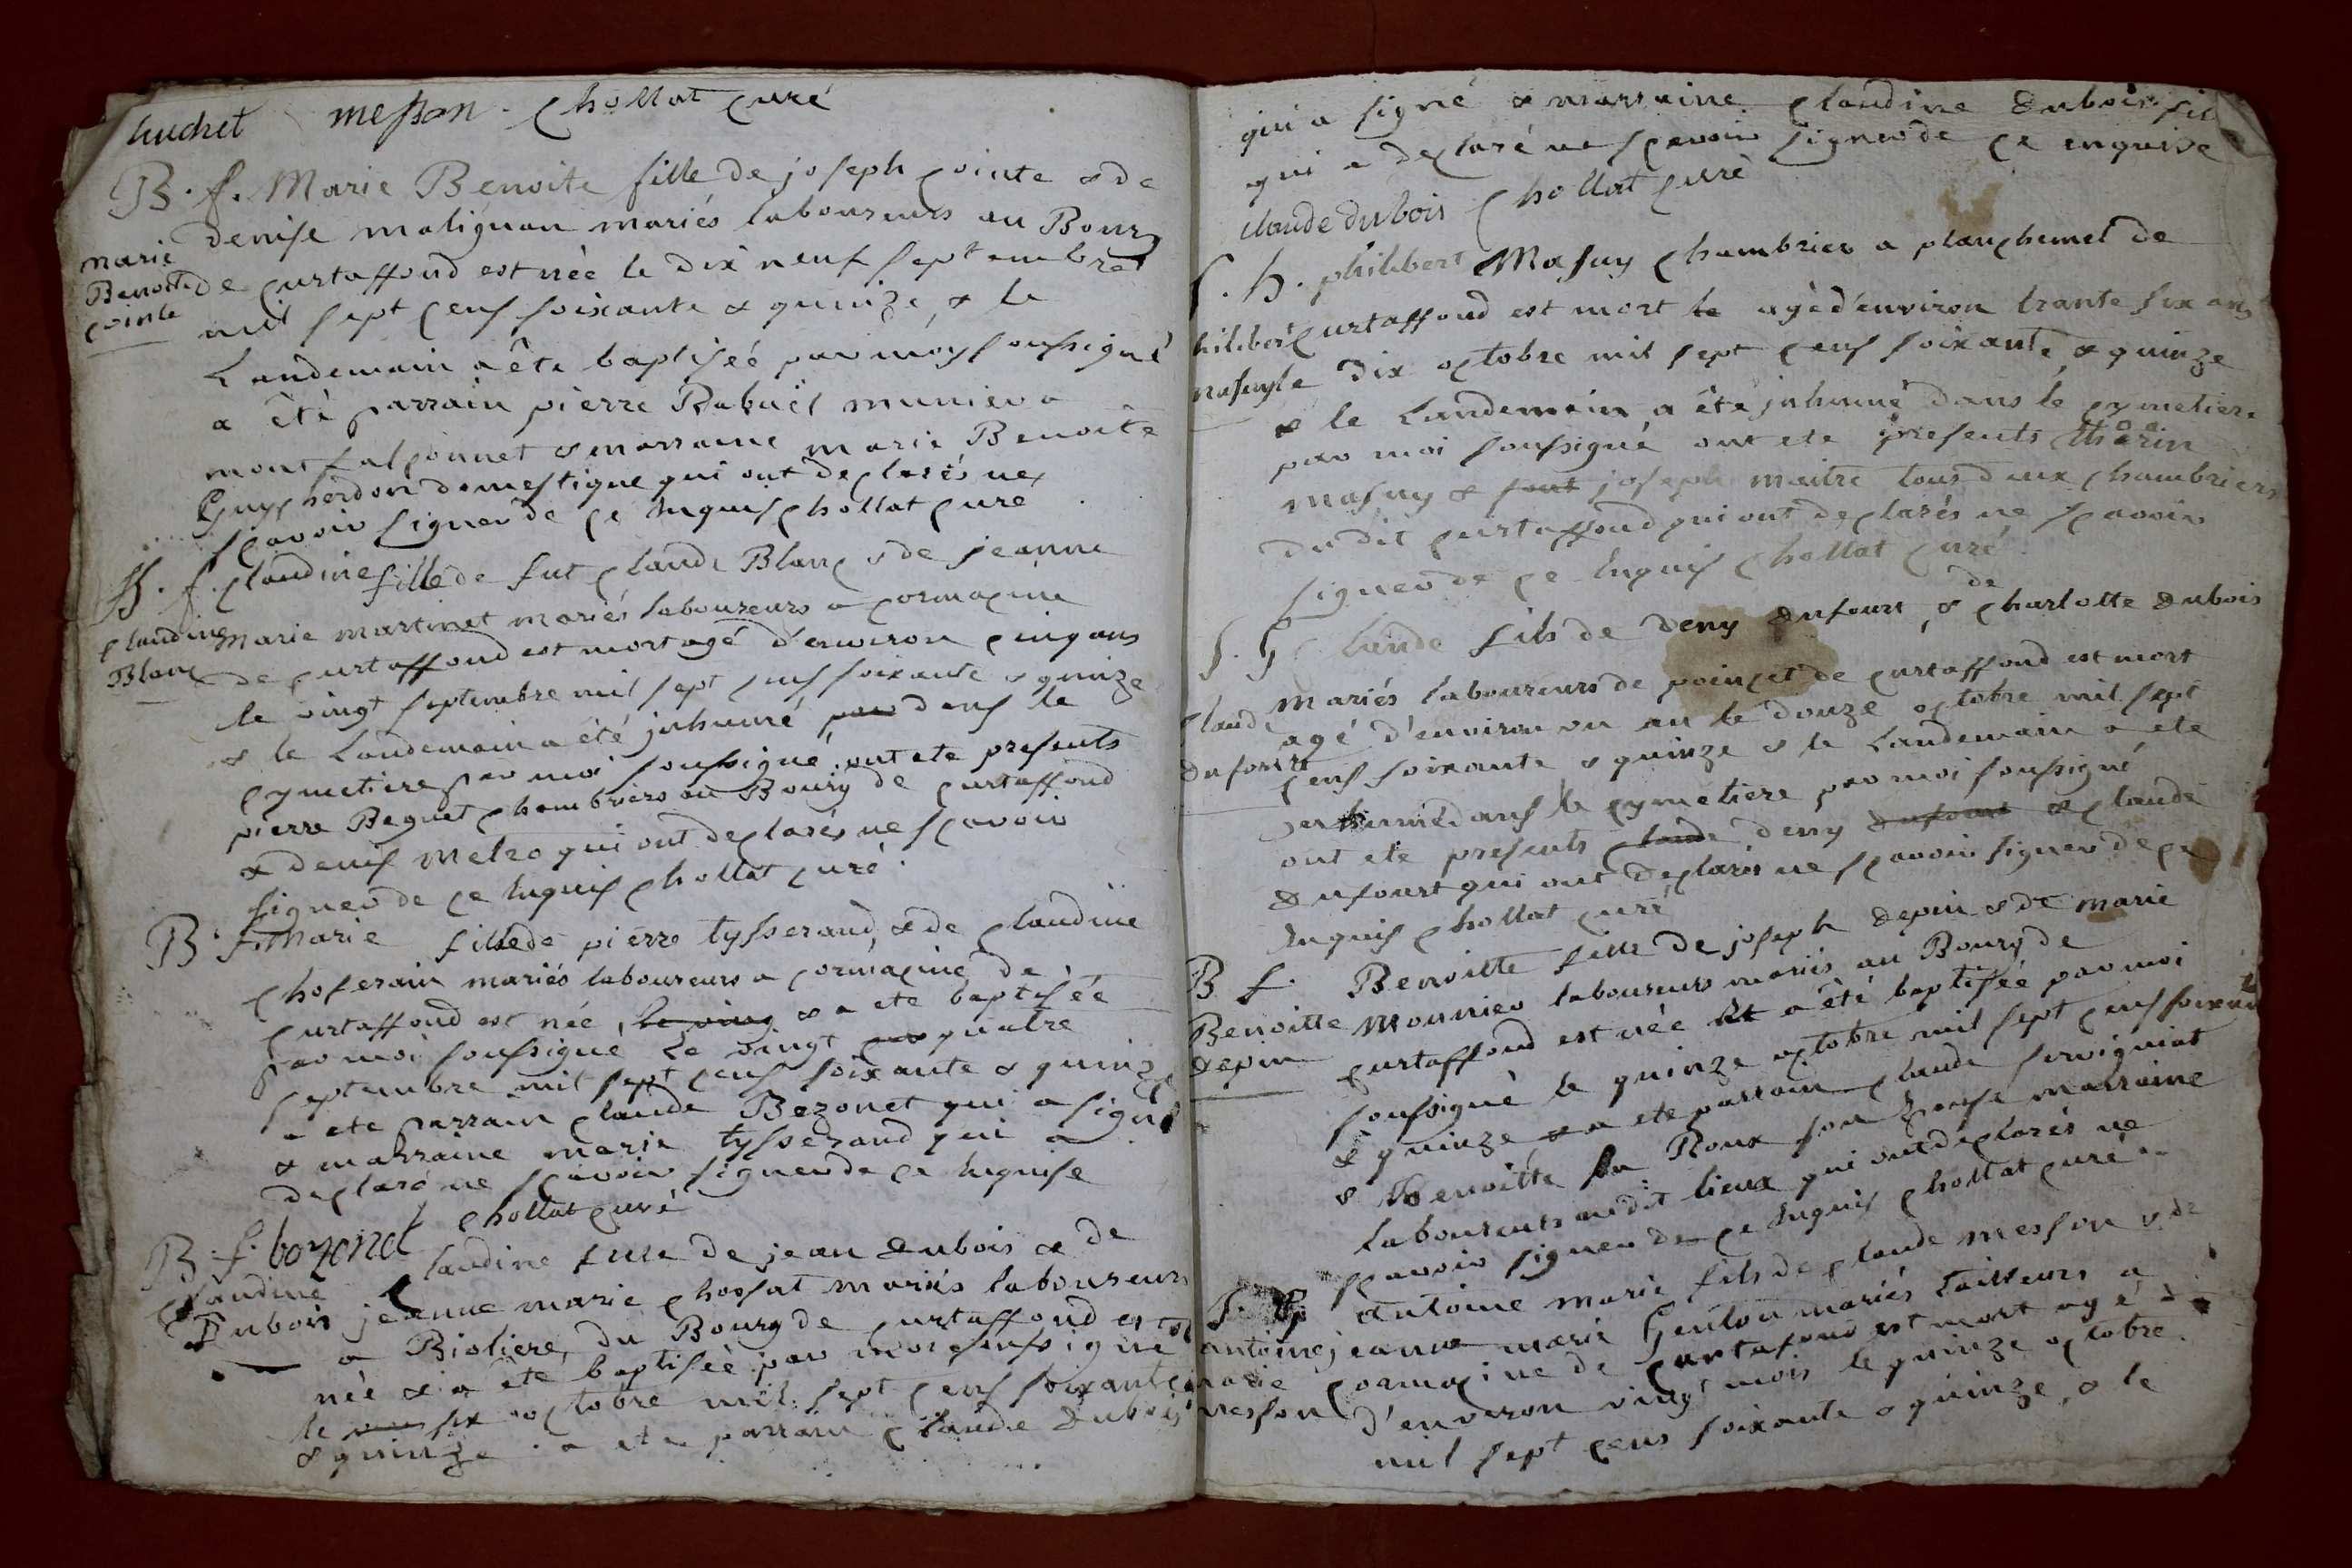 huchet messon chollat curé
B. f. Marie Benoite fille de joseph cointe & de
denise malignan mariés laboureurs au Bourg
marie
Benoite
cointe
de curtaffond est née le dix neuf septembre
mil sept cens soixante & quinze, & le
Landemain a êté baptiséé par moy soussigné
a êté parrain pierre Rabuel munier a
montfalconnet & marraine marie Benoite
domestique qui ont declarés ne
scavoir signer de ce Enquis chollat curé
S. f. claudine fille de fut claude Blanc & de jeanne
claudine
Blanc
marie martinet mariés laboureurs a cormacine
de curtaffond est mort agé d'environ cinq ans
le vingt septembre mil sept cens soixante & quinze
& le Landemain a été jnhumé par dens le
cymetiere par moi soussigné, ont ete presents
pierre Beguet chambriers au Bourg de curtaffond
& denis metro qui ont declarés ne scavoir
signer de ce Enquis chollat curé
B. f. Marie fille de pierre tysserand, & de claudine
choserain mariés laboureurs a cormacine de
curtaffond est née, le ving & a ete baptisée
par moi soussigné le vingt quatre
septembre mil sept cens soixante & quinze
a ete parrain claude Bezonet qui a signé
& marraine marie tysserand qui a
declaré ne scavoir signer de ce Enquise
bozonet chollat curé
B. f. claudine fille de jean dubois & de
claudine
Dubois
jeanne marie chossat mariés laboureurs
a Bioliere du Bourg de curtaffond est
née & a êté baptiséé par moi soussigné
le six octobre mil sept cens soixante
& quinze a ete parrain claude dubois
qui a signé & marraine claudine dubois
qui a declaré ne scavoir signer de ce enquise
claude dubois chollat curé
S. h. philibert Masuy chambrier a planchemel de
philibert
masuy
curtaffond est mort le agé d'environ trante six ans
le dix octobre mil sept cens soixante & quinze
& le Landemain a êté jnhumé dans le cymetiere
par moi soussigné ont ete presents thorin
masuy & font joseph maitre tous deux chambriers
dudit curtaffond qui ont declarés ne scavoir
signer de ce Enquis chollat curé
S. G claude fils de deny dufour, & de charlotte dubois
mariés laboureurs de poincet de curtaffond est mort
claude
dufour
agé d'environ un an le douze octobre mil sept
cens soixante & quinze & le Landemain a ete
jnhumé dans le cymetiere par moi soussigné
ont ete presents claude deny dufour & claude
dufourt qui ont declarés ne scavoir signer de ce
Enquis chollat curé
B f. Benoitte fille de joseph depin & de marie
Benoitte
depin
Monnier laboureurs mariés au Bourg de
curtaffond est née et a êté baptisée par moi
soussigné le quinze octobre mil sept cens soixante
& quinze & a ete parrain claude servigniat
& Benoitte La Roux son Epouse marraine
laboureurs audit lieux qui ont declarés ne
scavoir signer de ce Enquis chollat curé
S. G antoine marie fils de claude messon & de
antoine
marie
messon
jeanne marie Genton mariés tailleurs a
cormacine de curtafond est mort agé
d'environ vingt mois le quinze octobre
mil sept cens soixante & quinze, & le